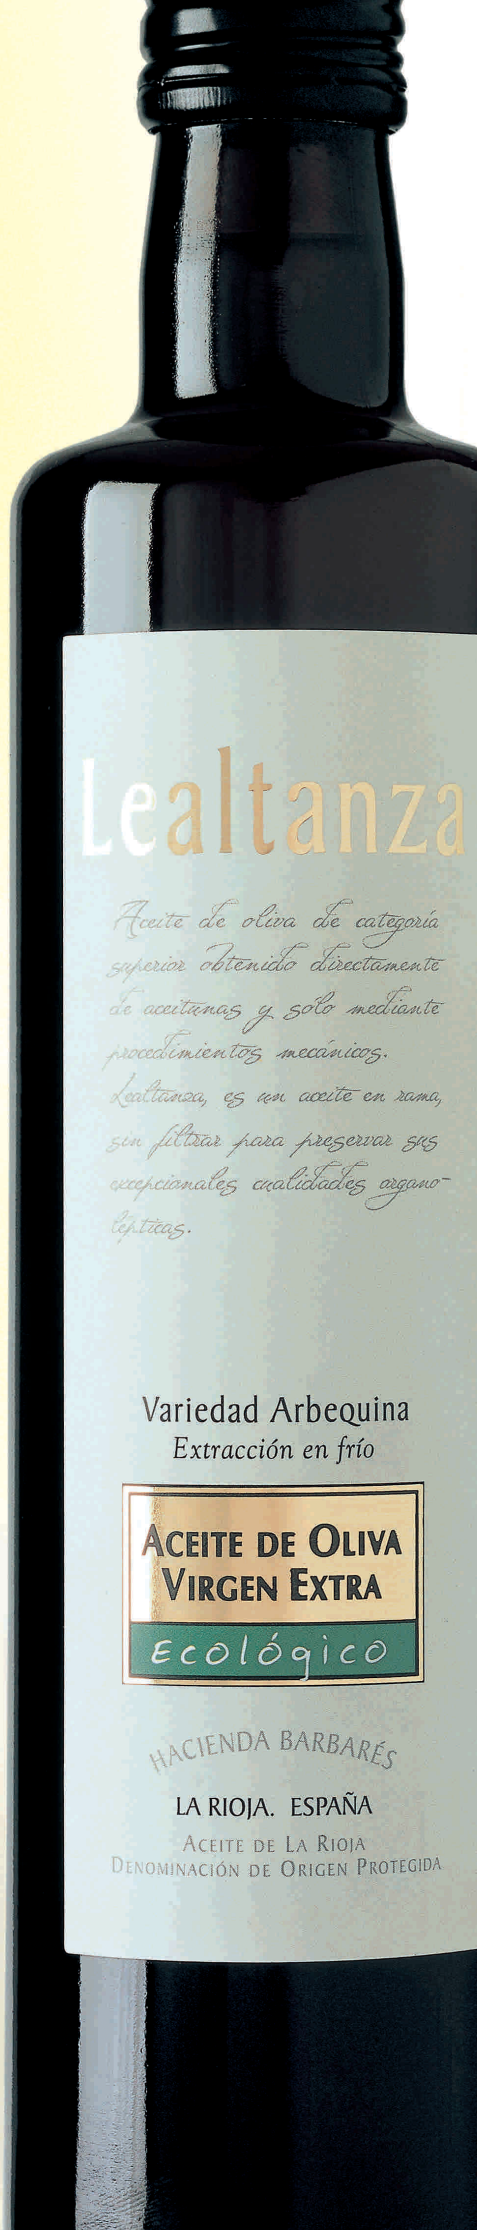 Lealtanza
Aceite de oliva de categoría
superior obtenido directamente
de aceitunas y solo mediante
procedimientos mecánicos.
Lealtanza, es un aceite en rama,
sin filtrar para preservar sus
excepcionales cualidades organo-
lépticas.
Variedad Arbequina
Extracción en frío
ACEITE DE OLIVA
VIRGEN EXTRA
Ecológico
HACIENDA BARBARÉS
LA RIOJA. ESPAÑA
ACEITE DE LA RIOJA
DENOMINACIÓN DE ORIGEN PROTEGIDA